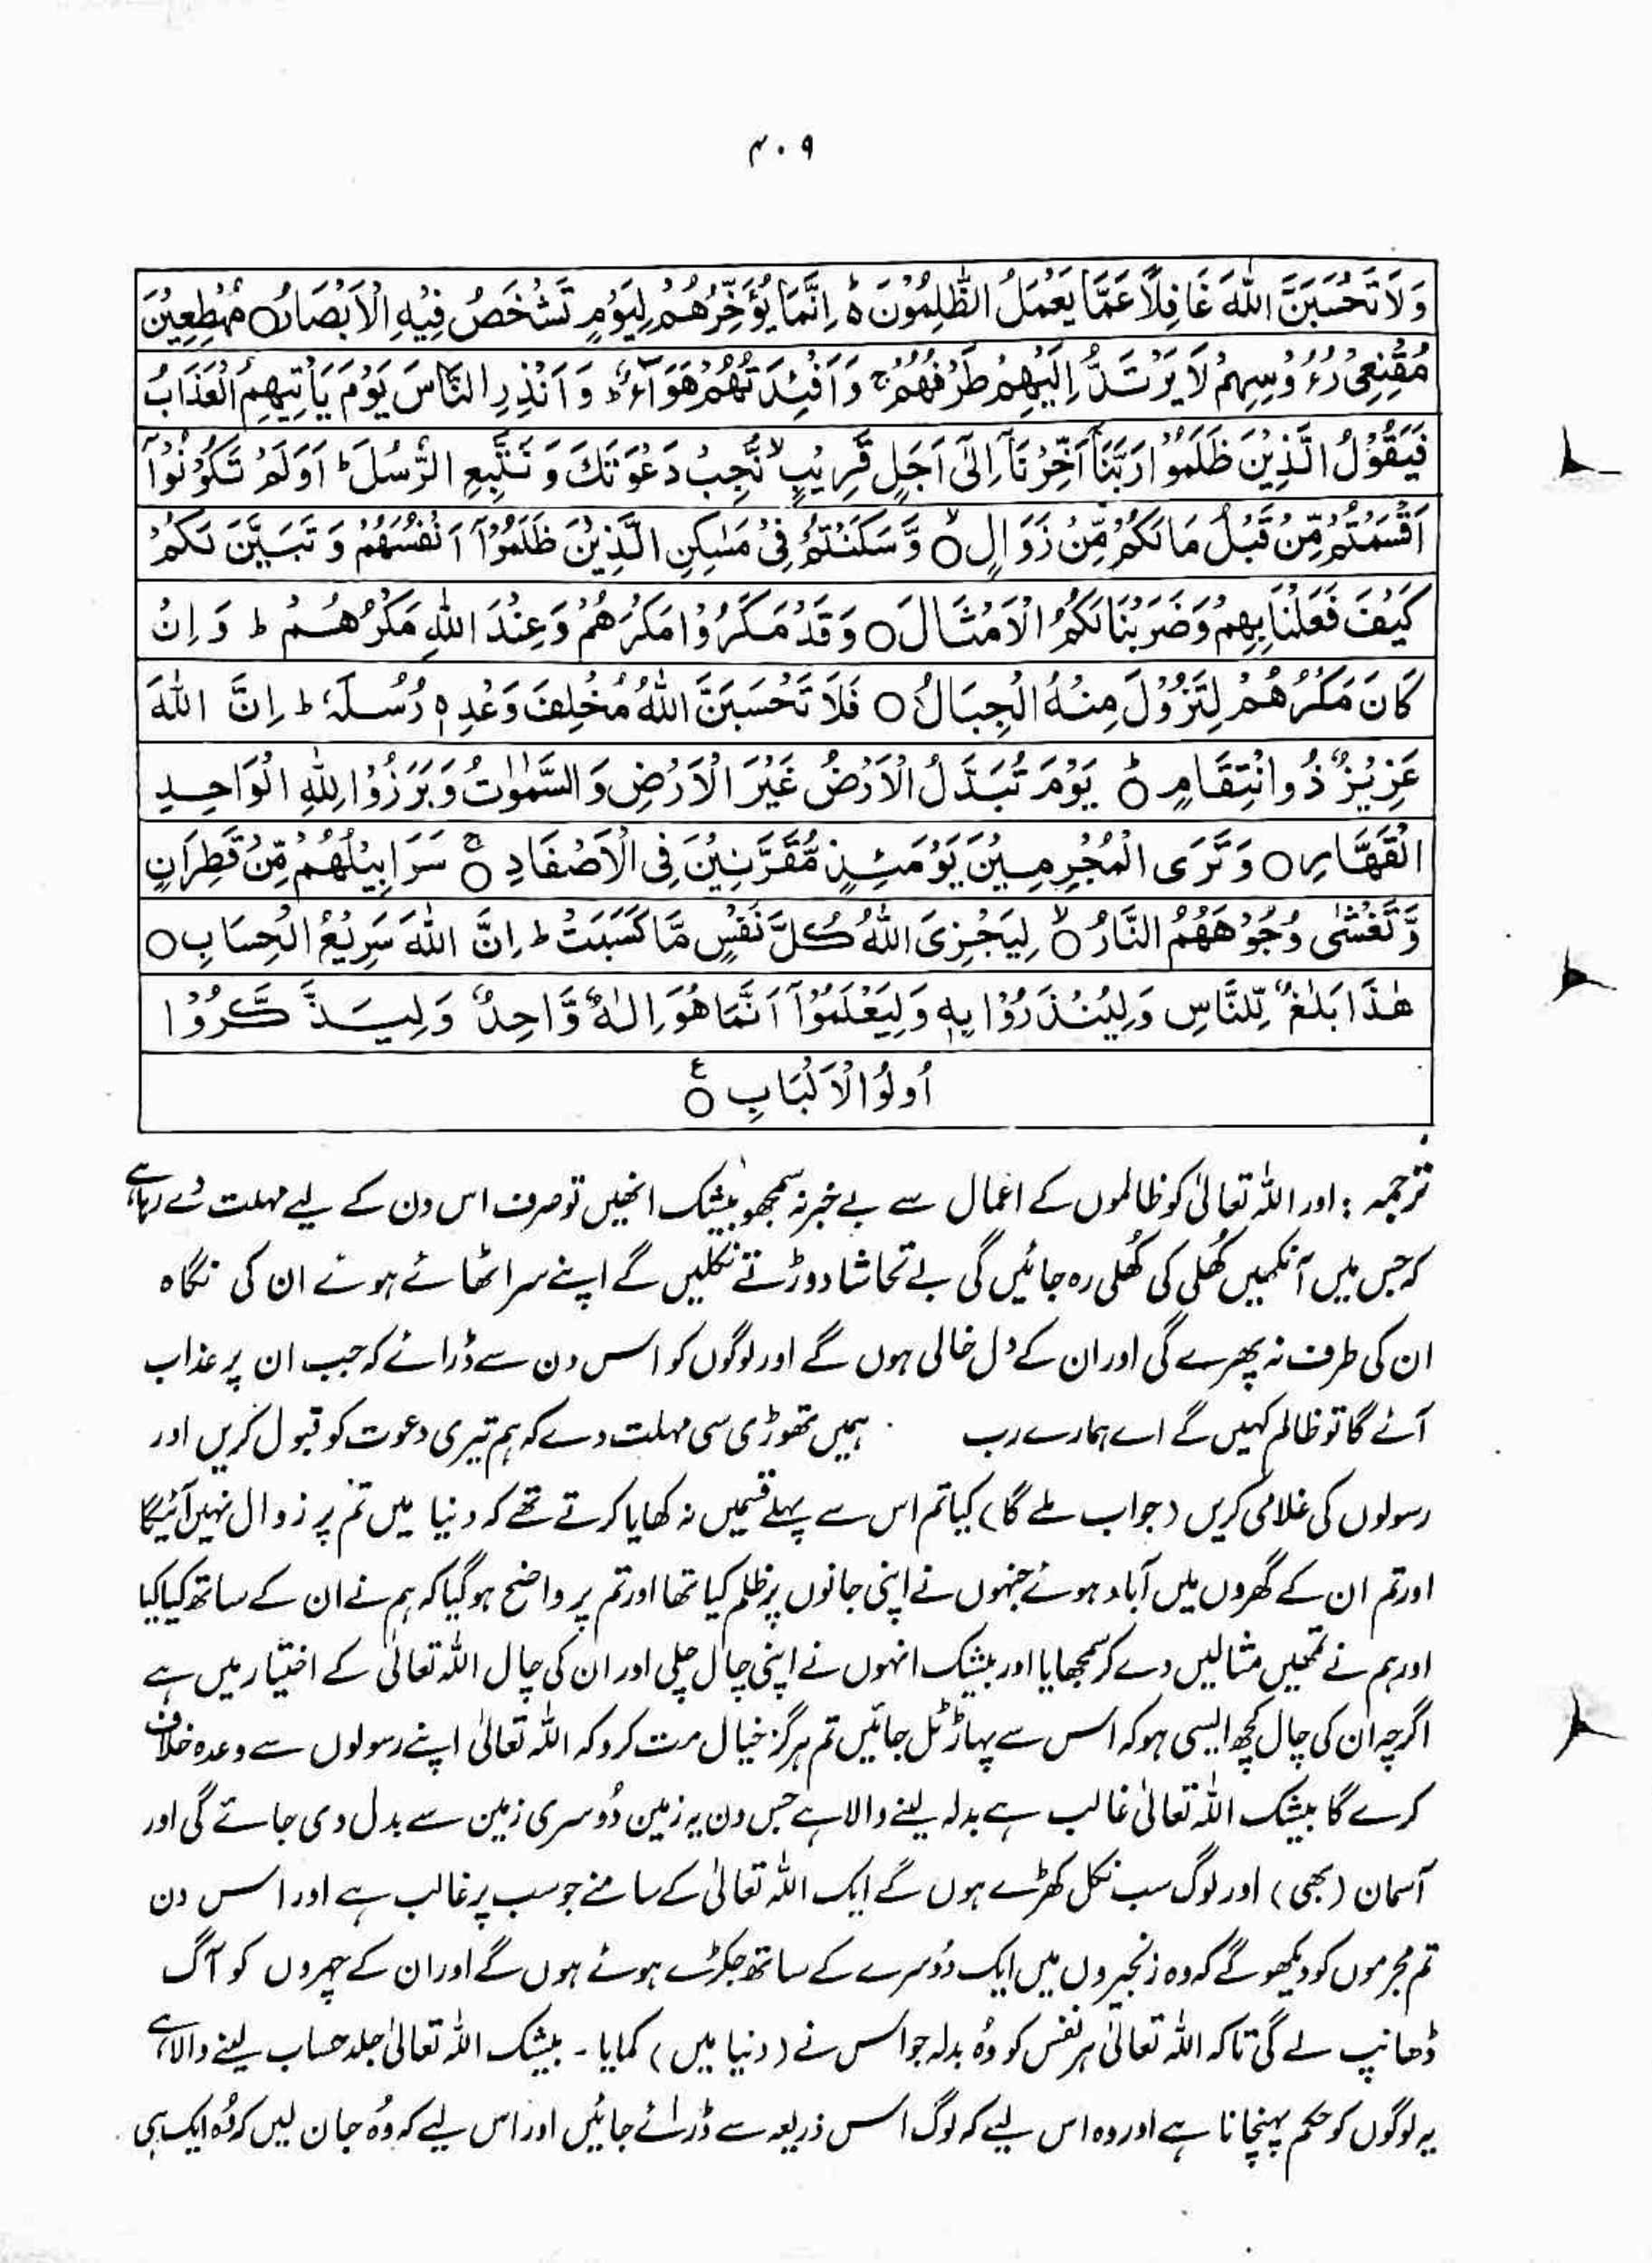 ۴۰۹
وَلَا تَحْسَبَنَّ اللّٰهَ غَافِلًا عَمَّا يَعْمَلُ الظّٰلِمُوْنَ ؕ اِنَّمَا يُؤَخِّرُهُمْ لِيَوْمٍ تَشْخَصُ فِيْهِ الْاَبْصَارُ ○ مُهْطِعِيْنَ
مُقْنِعِيْ رُءُوْسِهِمْ لَا يَرْتَدُّ اِلَيْهِمْ طَرْفُهُمْ ۚ وَاَفْئِدَتُهُمْ هَوَآءٌ ؕ وَاَنْذِرِ النَّاسَ يَوْمَ يَاْتِيْهِمُ الْعَذَابُ
فَيَقُوْلُ الَّذِيْنَ ظَلَمُوْا رَبَّنَآ اَخِّرْنَآ اِلٰٓى اَجَلٍ قَرِيْبٍ ۙ نُّجِبْ دَعْوَتَكَ وَنَتَّبِعِ الرُّسُلَ ؕ اَوَلَمْ تَكُوْنُوْٓا
اَقْسَمْتُمْ مِّنْ قَبْلُ مَا لَكُمْ مِّنْ زَوَالٍ ○ۙ وَّسَكَنْتُمْ فِيْ مَسٰكِنِ الَّذِيْنَ ظَلَمُوْٓا اَنْفُسَهُمْ وَتَبَيَّنَ لَكُمْ
كَيْفَ فَعَلْنَا بِهِمْ وَضَرَبْنَا لَكُمُ الْاَمْثَالَ ○ وَقَدْ مَكَرُوْا مَكْرَهُمْ وَعِنْدَ اللّٰهِ مَكْرُهُمْ ؕ وَاِنْ
كَانَ مَكْرُهُمْ لِتَزُوْلَ مِنْهُ الْجِبَالُ ○ فَلَا تَحْسَبَنَّ اللّٰهَ مُخْلِفَ وَعْدِهٖ رُسُلَهٗ ؕ اِنَّ اللّٰهَ
عَزِيْزٌ ذُو انْتِقَامٍ ○ؕ يَوْمَ تُبَدَّلُ الْاَرْضُ غَيْرَ الْاَرْضِ وَالسَّمٰوٰتُ وَبَرَزُوْا لِلّٰهِ الْوَاحِدِ
الْقَهَّارِ ○ وَتَرَى الْمُجْرِمِيْنَ يَوْمَئِذٍ مُّقَرَّنِيْنَ فِى الْاَصْفَادِ ○ۚ سَرَابِيْلُهُمْ مِّنْ قَطِرَانٍ
وَّتَغْشٰى وُجُوْهَهُمُ النَّارُ ○ۙ لِيَجْزِىَ اللّٰهُ كُلَّ نَفْسٍ مَّا كَسَبَتْ ؕ اِنَّ اللّٰهَ سَرِيْعُ الْحِسَابِ ○
هٰذَا بَلٰغٌ لِّلنَّاسِ وَلِيُنْذَرُوْا بِهٖ وَلِيَعْلَمُوْٓا اَنَّمَا هُوَ اِلٰهٌ وَّاحِدٌ وَّلِيَذَّكَّرُوْا
اُولُوا الْاَلْبَابِ ○ۧ
ترجمہ : اور اللہ تعالیٰ کو ظالموں کے اعمال سے بے خبر نہ سمجھو بیشک انھیں تو صرف اس دن کے لیے مہلت دے رہا ہے
کہ جس میں آنکھیں کُھلی کی کُھلی رہ جائیں گی بے تحاشا دوڑتے نکلیں گے اپنے سر اٹھائے ہوئے ان کی نگاہ
ان کی طرف نہ پھرے گی اور ان کے دل خالی ہوں گے اور لوگوں کو اس دن سے ڈرائے کہ جب ان پر عذاب
آئے گا تو ظالم کہیں گے اے ہمارے رب ہمیں تھوڑی سی مہلت دے کہ ہم تیری دعوت کو قبول کریں اور
رسولوں کی غلامی کریں (جواب ملے گا) کیا تم اس سے پہلے قسمیں نہ کھایا کرتے تھے کہ دنیا میں تم پر زوال نہیں آئیگا
اور تم ان کے گھروں میں آباد ہوئے جنہوں نے اپنی جانوں پر ظلم کیا تھا اور تم پر واضح ہوگیا کہ ہم نے ان کے ساتھ کیا کیا
اور ہم نے تمھیں مثالیں دے کر سمجھایا اور بیشک انہوں نے اپنی چال چلی اور ان کی چال اللہ تعالیٰ کے اختیار میں ہے
اگرچہ ان کی چال کچھ ایسی ہو کہ اس سے پہاڑ ٹل جائیں تم ہرگز خیال مت کرو کہ اللہ تعالیٰ اپنے رسولوں سے وعدہ خلاف
کرے گا بیشک اللہ تعالیٰ غالب ہے بدلہ لینے والا ہے جس دن یہ زمین دُوسری زمین سے بدل دی جائے گی اور
آسمان (بھی) اور لوگ سب نکل کھڑے ہوں گے ایک اللہ تعالیٰ کے سامنے جو سب پر غالب ہے اور اس دن
تم مجرموں کو دیکھو گے کہ وہ زنجیروں میں ایک دُوسرے کے ساتھ جکڑے ہوئے ہوں گے اور ان کے چہروں کو آگ
ڈھانپ لے گی تاکہ اللہ تعالیٰ ہر نفس کو وُہ بدلہ جو اس نے (دنیا میں) کمایا ۔ بیشک اللہ تعالیٰ جلد حساب لینے والا ہے
یہ لوگوں کو حکم پہنچانا ہے اور وہ اس لیے کہ لوگ اس ذریعہ سے ڈرائے جائیں اور اس لیے کہ وُہ جان لیں کہ وُہ ایک ہی